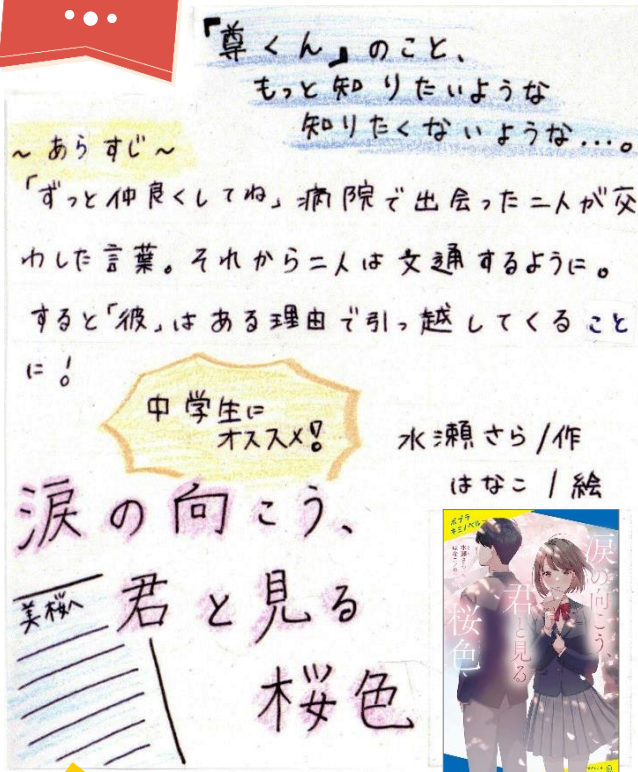 『尊くん』のこと、
もっと知りたいような
知りたくないような…。
～あらすじ～
「ずっと仲良くしてね」病院で出会った二人が交
わした言葉。それから二人は文通するように。
すると「彼」はある理由で引っ越してくること
に！
中学生に
オススメ！
水瀬さら/作
はなこ/絵
涙の向こう、
君と見る
桜色
美桜へ
ポプラ
キミノベル
涙の向こう、
君と見る
桜色